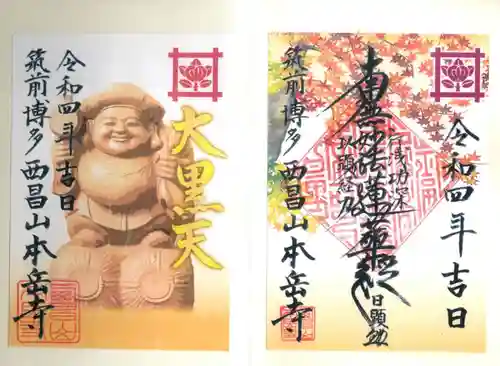 大黒天
令和四年吉日
筑前博多 西昌山本岳寺
令和四年吉日
南無妙法蓮華経
日顕
筑前博多 西昌山本岳寺